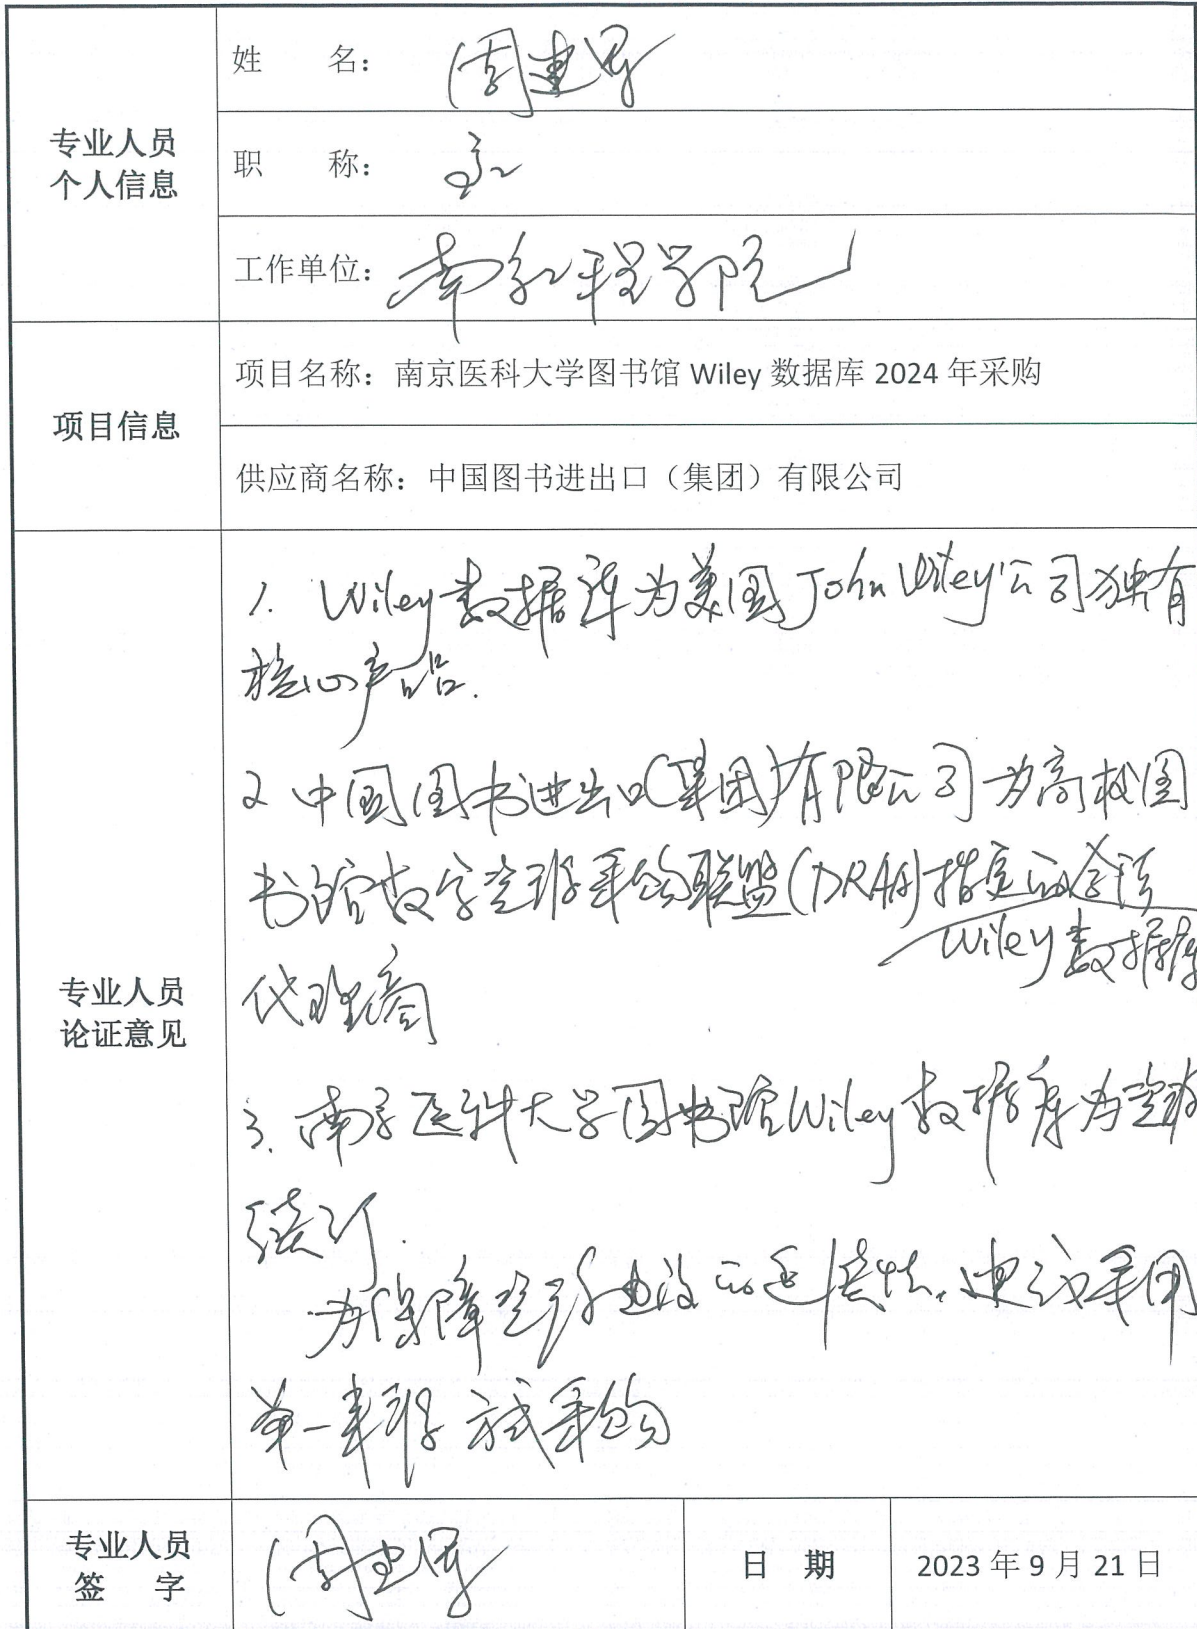 专业人员
个人信息
姓 名：周建军
职 称：
工作单位：南京工程学院
项目信息
项目名称：南京医科大学图书馆 Wiley 数据库 2024 年采购
供应商名称：中国图书进出口（集团）有限公司
专业人员
论证意见
1. Wiley数据库为美国John Wiley公司独有
核心产品.
2 中国图书进出口(集团)有限公司为高校图
书馆数字资源采购联盟(DRAA)指定的
Wiley数据库
代理商
3. 南京医科大学图书馆Wiley数据库为
续订.
为保障资源建设的连续性,建议采用
单一来源方式采购
专业人员
签 字
周建军
日 期
2023 年 9 月 21 日